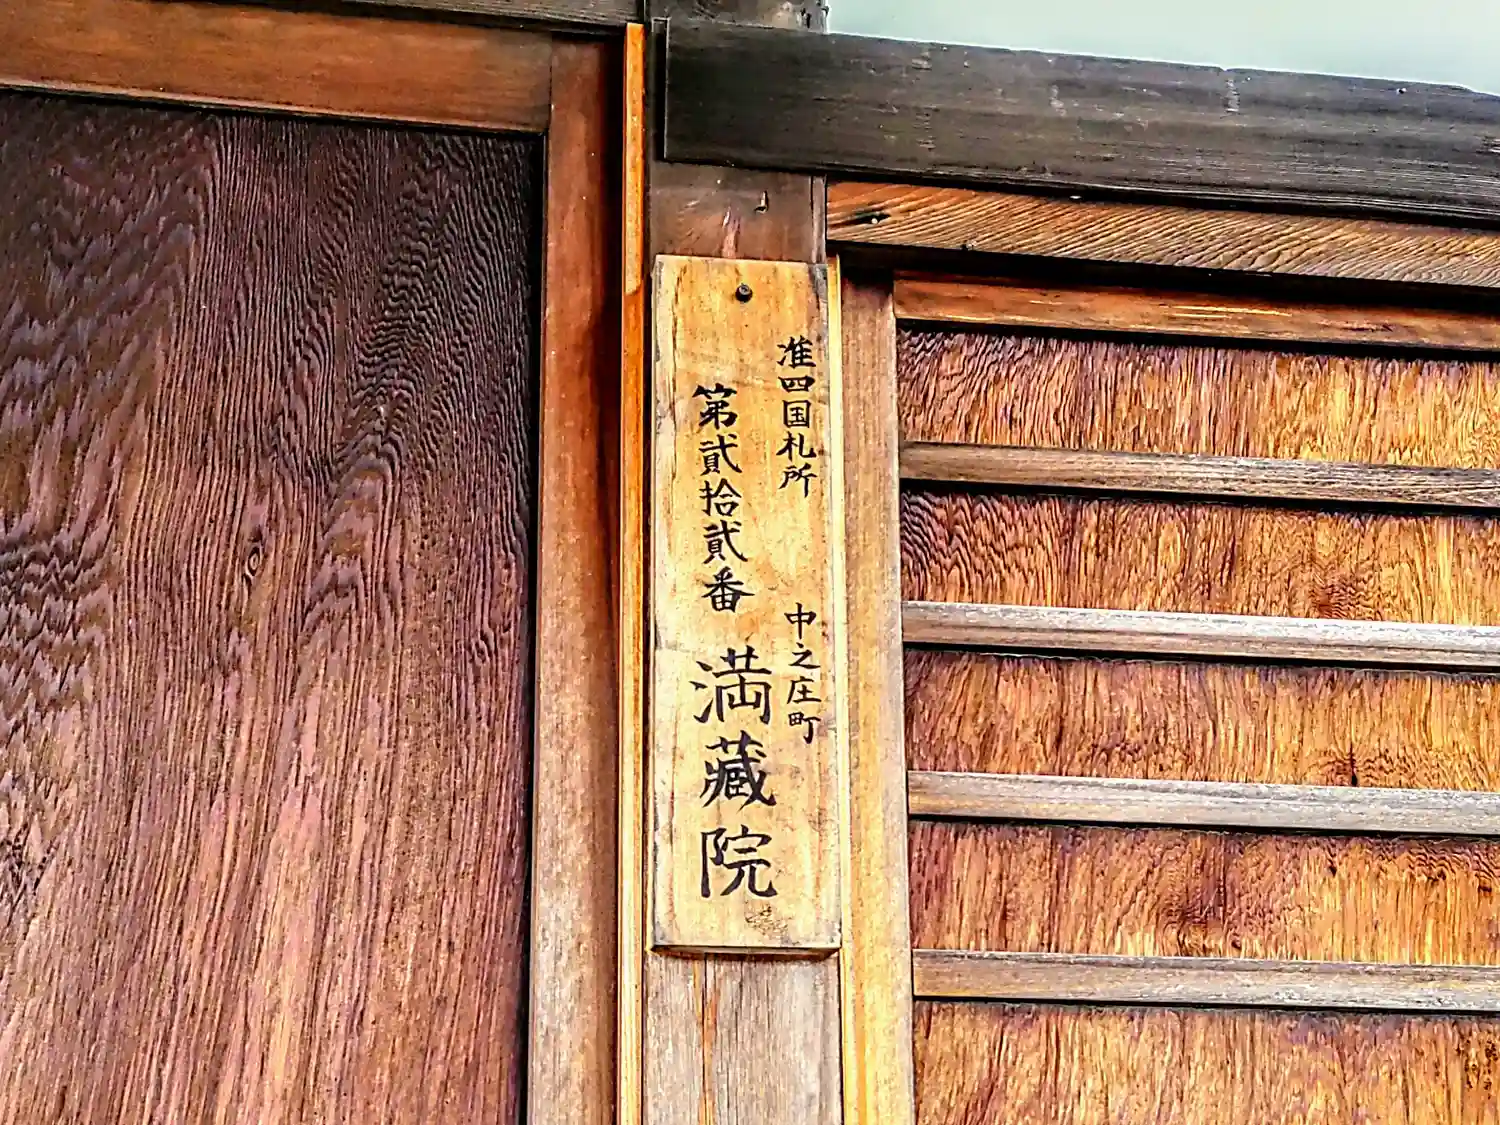 准四国札所 中之庄町
第貳拾貳番 満藏院